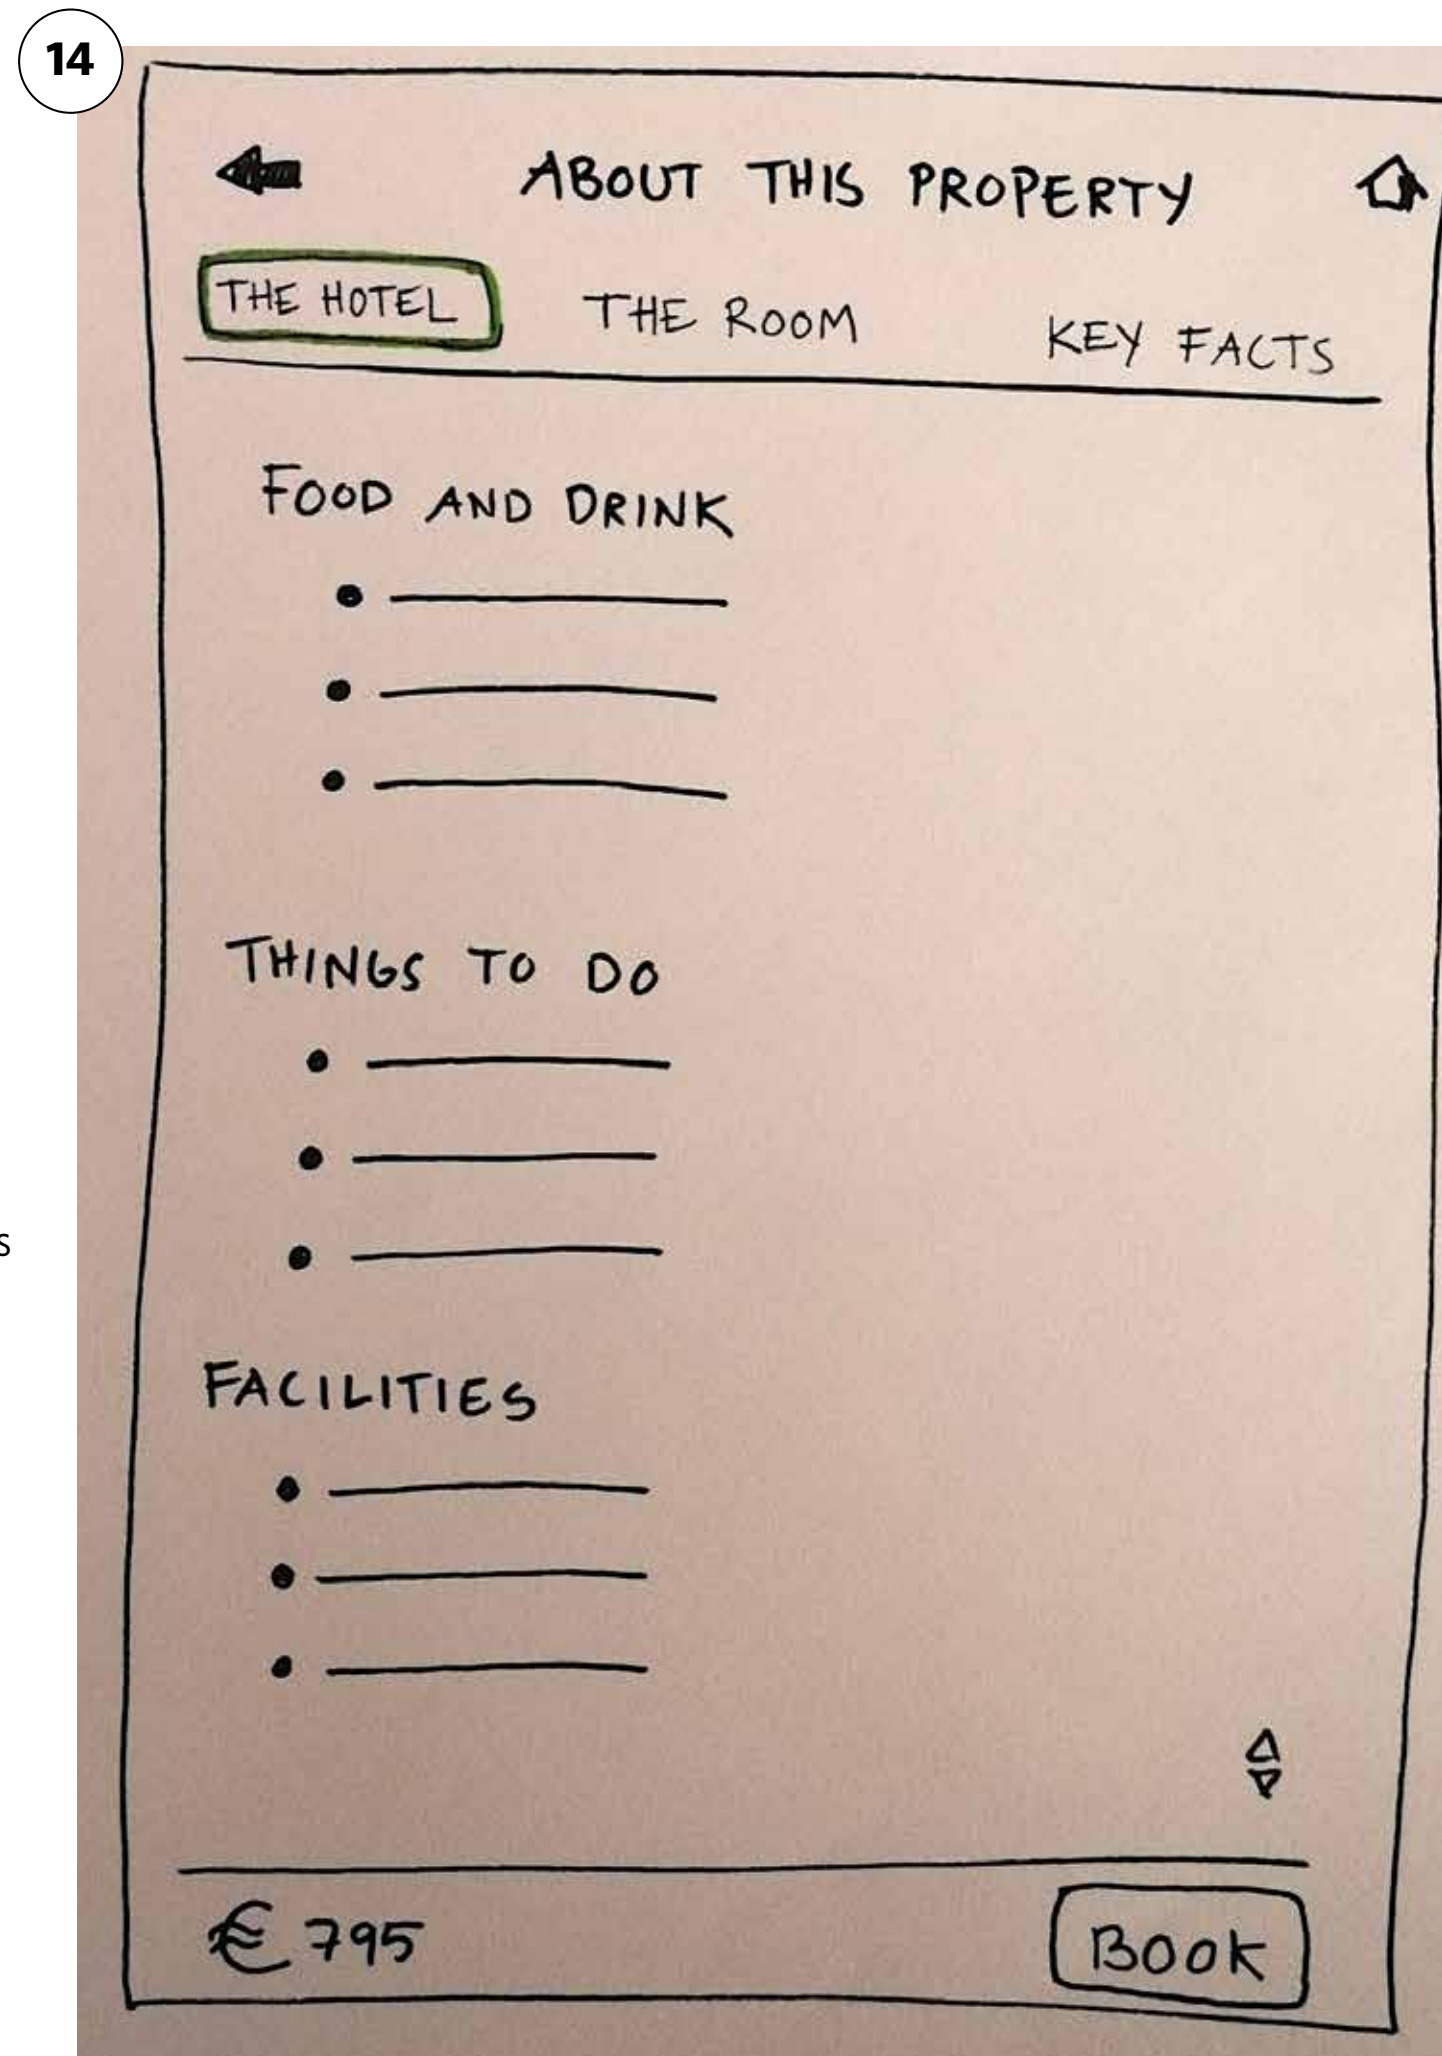 14
ABOUT THIS PROPERTY
THE HOTEL THE ROOM KEY FACTS
FOOD AND DRINK
THINGS TO DO
s
FACILITIES
€ 795 BOOK